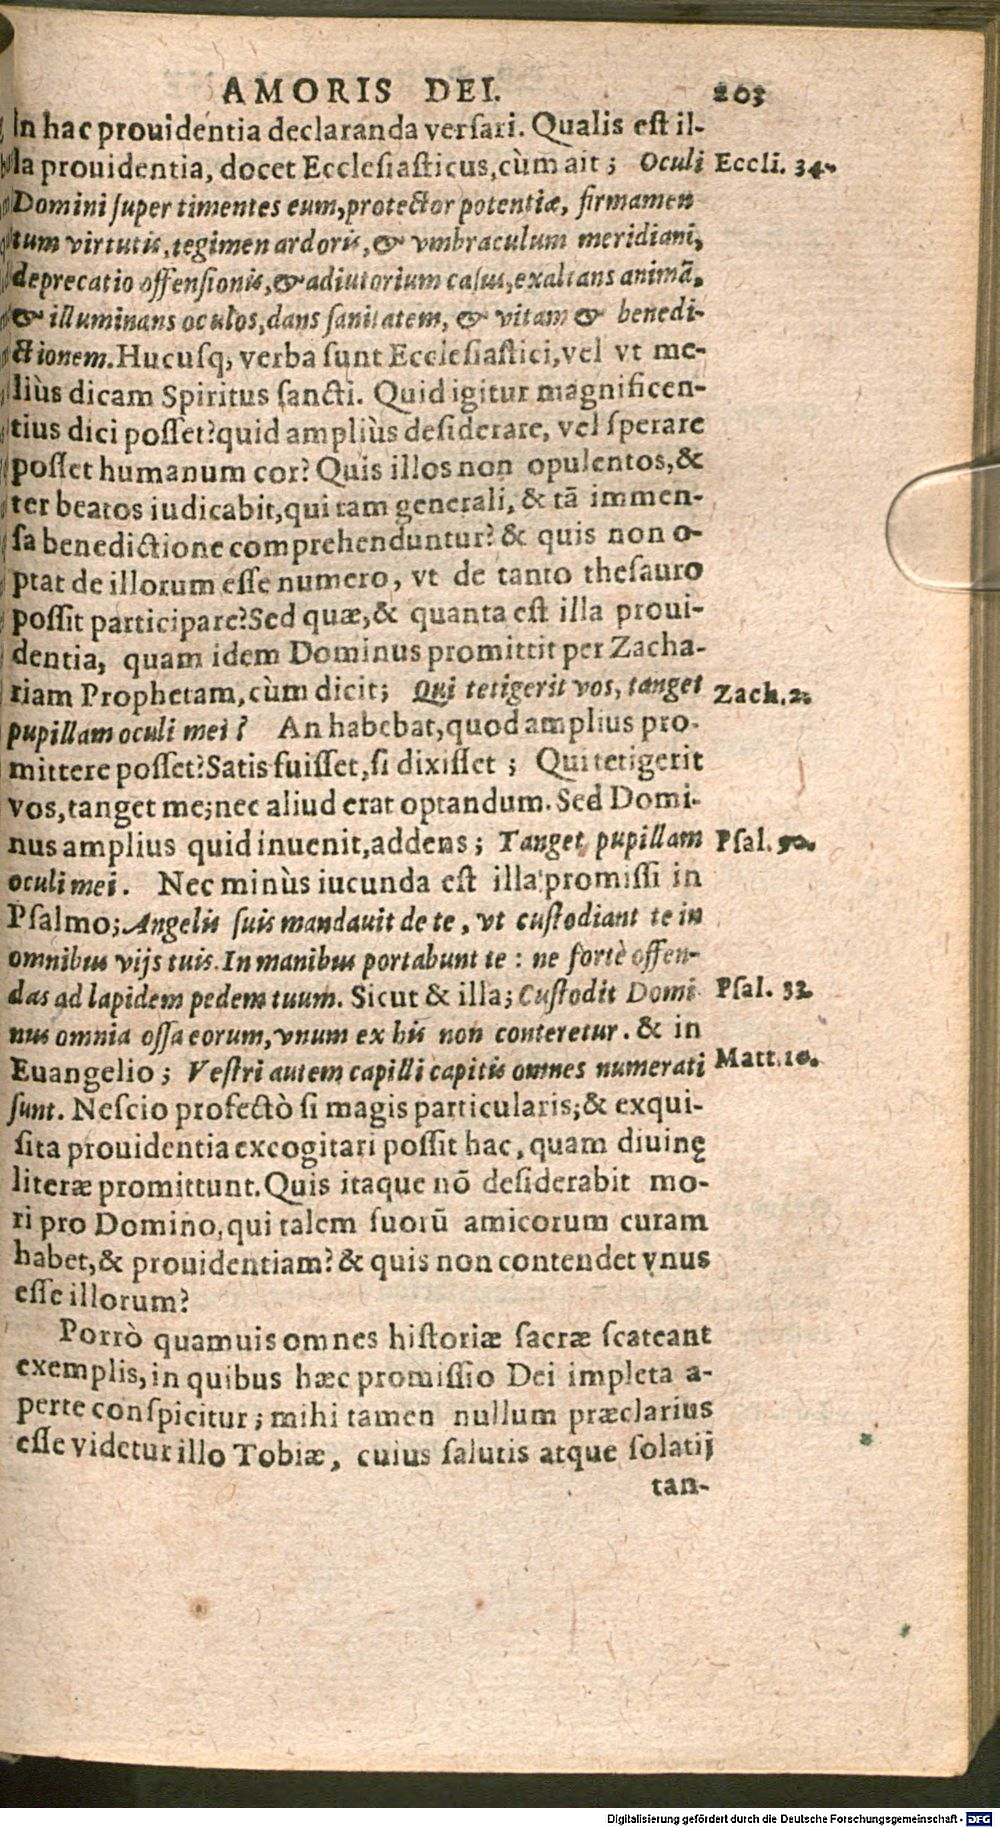 AMORIS DEI. 203
In hac prouidentia declaranda versari. Qualis est il-
la prouidentia, docet Ecclesiasticus, cùm ait; Oculi Eccli. 34.
Domini super timentes eum, protector potentiæ, firmamen
tum virtutis, tegimen ardoris, & vmbraculum meridiani,
deprecatio offensionis, & adiutorium casus, exaltans animã,
& illuminans oculos, dans sanitatem, & vitam & benedi-
ctionem. Hucusq; verba sunt Ecclesiastici, vel vt me-
liùs dicam Spiritus sancti. Quid igitur magnificen-
tius dici posset? quid ampliùs desiderare, vel sperare
posset humanum cor? Quis illos non opulentos, &
ter beatos iudicabit, qui tam generali, & tã immen-
sa benedictione comprehenduntur? & quis non o-
ptat de illorum esse numero, vt de tanto thesauro
possit participare? Sed quæ, & quanta est illa proui-
dentia, quam idem Dominus promittit per Zacha-
riam Prophetam, cùm dicit; Qui tetigerit vos, tanget Zach. 2.
pupillam oculi mei? An habebat, quod amplius pro-
mittere posset? Satis fuisset, si dixisset; Qui tetigerit
vos, tanget me; nec aliud erat optandum. Sed Domi-
nus amplius quid inuenit, addens; Tanget pupillam Psal. 90.
oculi mei. Nec minùs iucunda est illa promissi in
Psalmo; Angelis suis mandauit de te, vt custodiant te in
omnibus vijs tuis. In manibus portabunt te: ne fortè offen-
das ad lapidem pedem tuum. Sicut & illa; Custodit Domi Psal. 33.
nus omnia ossa eorum, vnum ex his non conteretur. & in
Euangelio; Vestri autem capilli capitis omnes numerati Matt. 10.
sunt. Nescio profectò si magis particularis, & exqui-
sita prouidentia excogitari possit hac, quam diuinę
literæ promittunt. Quis itaque nõ desiderabit mo-
ri pro Domino, qui talem suorũ amicorum curam
habet, & prouidentiam? & quis non contendet vnus
esse illorum?
Porrò quamuis omnes historiæ sacræ scateant
exemplis, in quibus hæc promissio Dei impleta a-
perte conspicitur; mihi tamen nullum præclarius
esse videtur illo Tobiæ, cuius salutis atque solatij
tan-
Digitalisierung gefördert durch die Deutsche Forschungsgemeinschaft - DFG